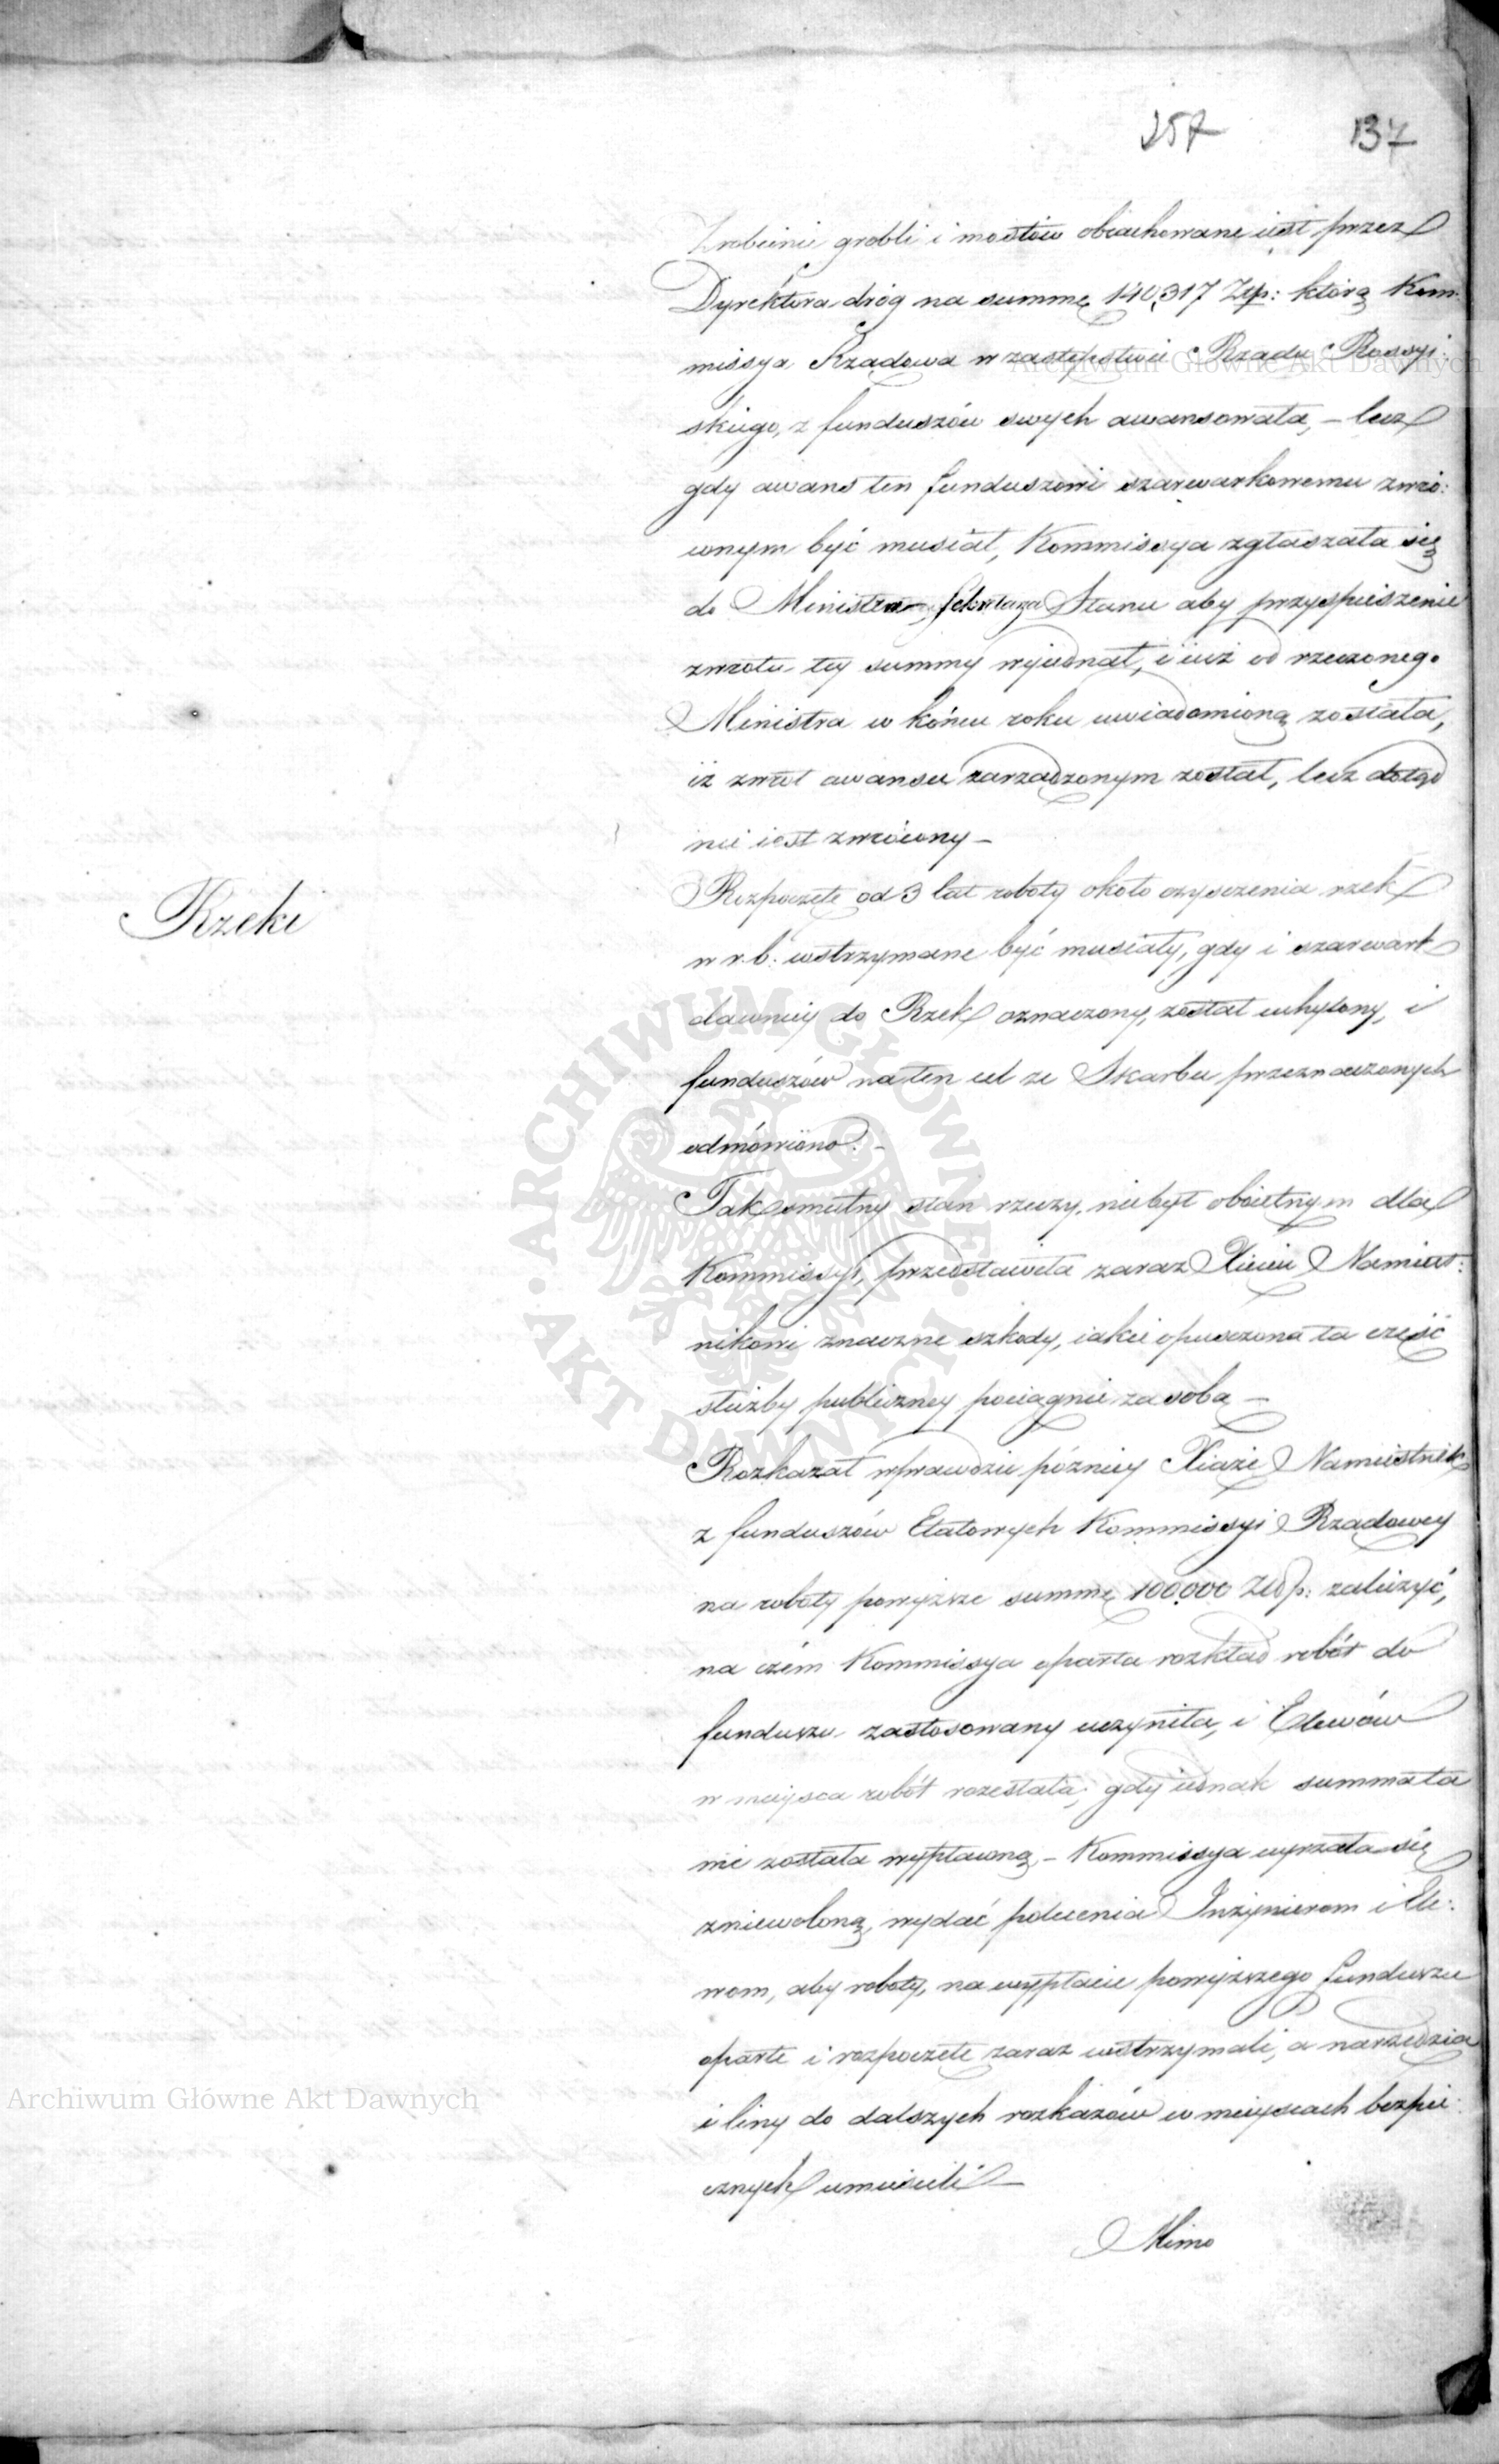 257 137
Zrobienie grobli i mostów obrachowane iest przez
Dyrektora dróg na summę 140,317 Złp: którą Kom:
missya Rządowa w zastępstwie Rządu Rossyi:
skiego, z funduszów swych awansowała, – lecz
gdy awans ten funduszowi szarwarkowemu zwró:
conym być musiał, Kommissya zgłaszała się
do Ministra Sekretarza Stanu aby przyspieszenie
zwrotu tey summy wyiednał, i iuż od rzeczonego
Ministra w końcu roku uwiadomioną została,
iż zwrot awansu zarządzonym został, lecz dotąd
nie iest zwrócony –
Rzeki
Rozpoczęte od 3 lat roboty około czyszczenia rzek
w r. b. wstrzymane być musiały, gdy i szarwark
dawniey do Rzek oznaczony, został uchylony, i
funduszów na ten cel ze Skarbu przeznaczonych
odmówiono. –
Tak smutny stan rzeczy, niebył oboiętnym dla
Kommissyi, przedstawiła zaraz Xięciu Namiest:
nikowi znaczne szkody, iakie opuszczona ta część
służby publiczney pociągnie za sobą –
Rozkazał wprawdzie późniey Xiąże Namiestnik
z funduszów Etatowych Kommissyi Rządowey
na roboty powyższe summę 100,000 Złp: zaliczyć,
na czém Kommissya oparta rozkład robót do
funduszu zastosowany uczyniła, i Elewów
w mieysca robót rozesłała; gdy iednak summa ta
nie została wypłaconą – Kommissya uyrzała się
zniewoloną, wydać polecenia Inżynierom i Ele:
wom, aby roboty, na wypłacie powyższego funduszu
oparte i rozpoczęte zaraz wstrzymali, a narzędzia
i liny do dalszych rozkazów w mieyscach bezpie:
cznych umieścili –
Mimo
Archiwum Główne Akt Dawnych
Archiwum Główne Akt Dawnych
ARCHIWUM GŁÓWNE · AKT DAWNYCH ·